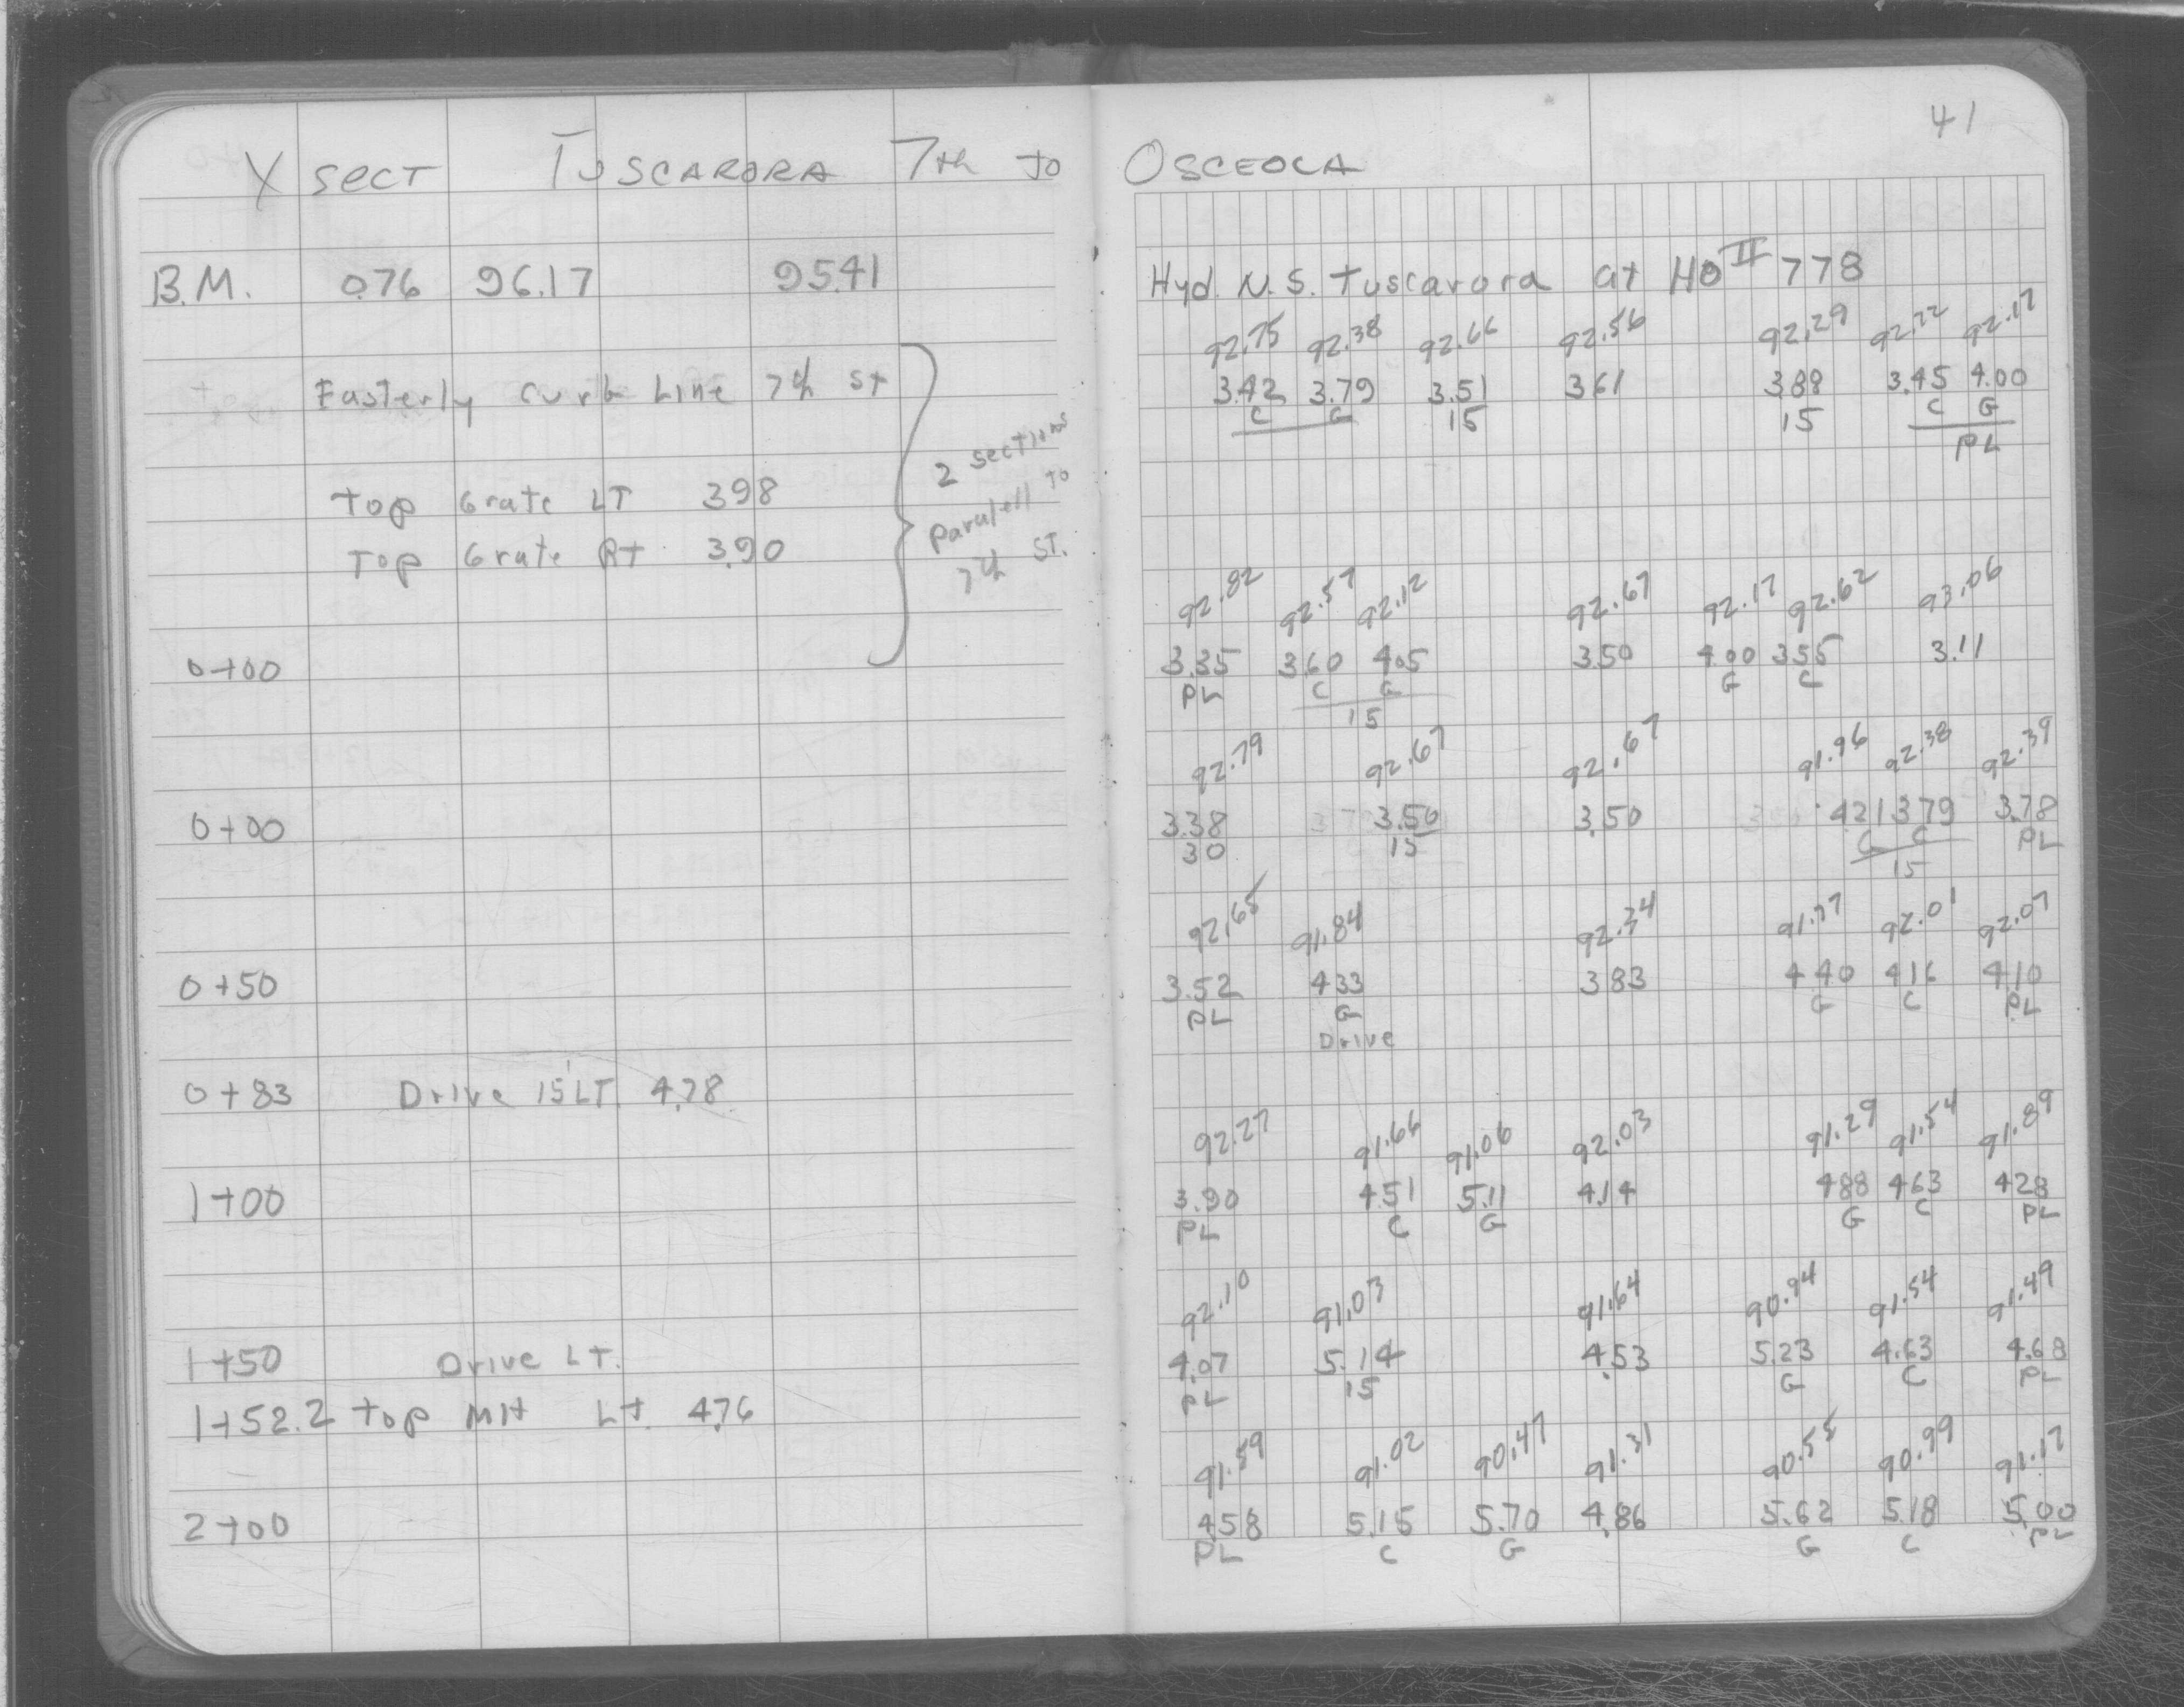 X SECT TUSCARORA 7TH TO OSCEOLA
41
B.M. 0.76 96.17 95.41 Hyd. N.S. Tuscarora at Ho II 778
92.75 92.38 92.66 92.56 92.29 92.22 92.17
Easterly Curb Line 7th St 3.42 3.79 3.51 3.61 3.88 3.45 4.00
C G 15 15 C G
PL
2 sections
Top Grate LT 3.98
Paralell to
Top Grate Rt 3.90
7th ST.
92.82 92.57 92.12 92.67 92.17 92.62 93.06
0+00 3.35 3.60 4.05 3.50 4.00 3.55 3.11
PL C G G C
15
92.79 92.67 92.67 91.96 92.38 92.39
0+00 3.38 3.50 3.50 4.21 3.79 3.78
30 15 G C PL
15
92.65 91.84 92.34 91.77 92.01 92.07
0+50 3.52 4.33 3.83 4.40 4.16 4.10
PL G G C PL
Drive
0+83 Drive 15' LT. 4.78
92.27 91.66 91.06 92.03 91.29 91.54 91.89
1+00 3.90 4.51 5.11 4.14 4.88 4.63 4.28
PL C G G C PL
92.10 91.03 91.64 90.94 91.54 91.49
1+50 Drive LT. 4.07 5.14 4.53 5.23 4.63 4.68
PL 15 G C PL
1+52.2 Top MH Lt. 4.76
91.59 91.02 90.47 91.31 90.55 90.99 91.17
2+00 4.58 5.15 5.70 4.86 5.62 5.18 5.00
PL C G G C PL